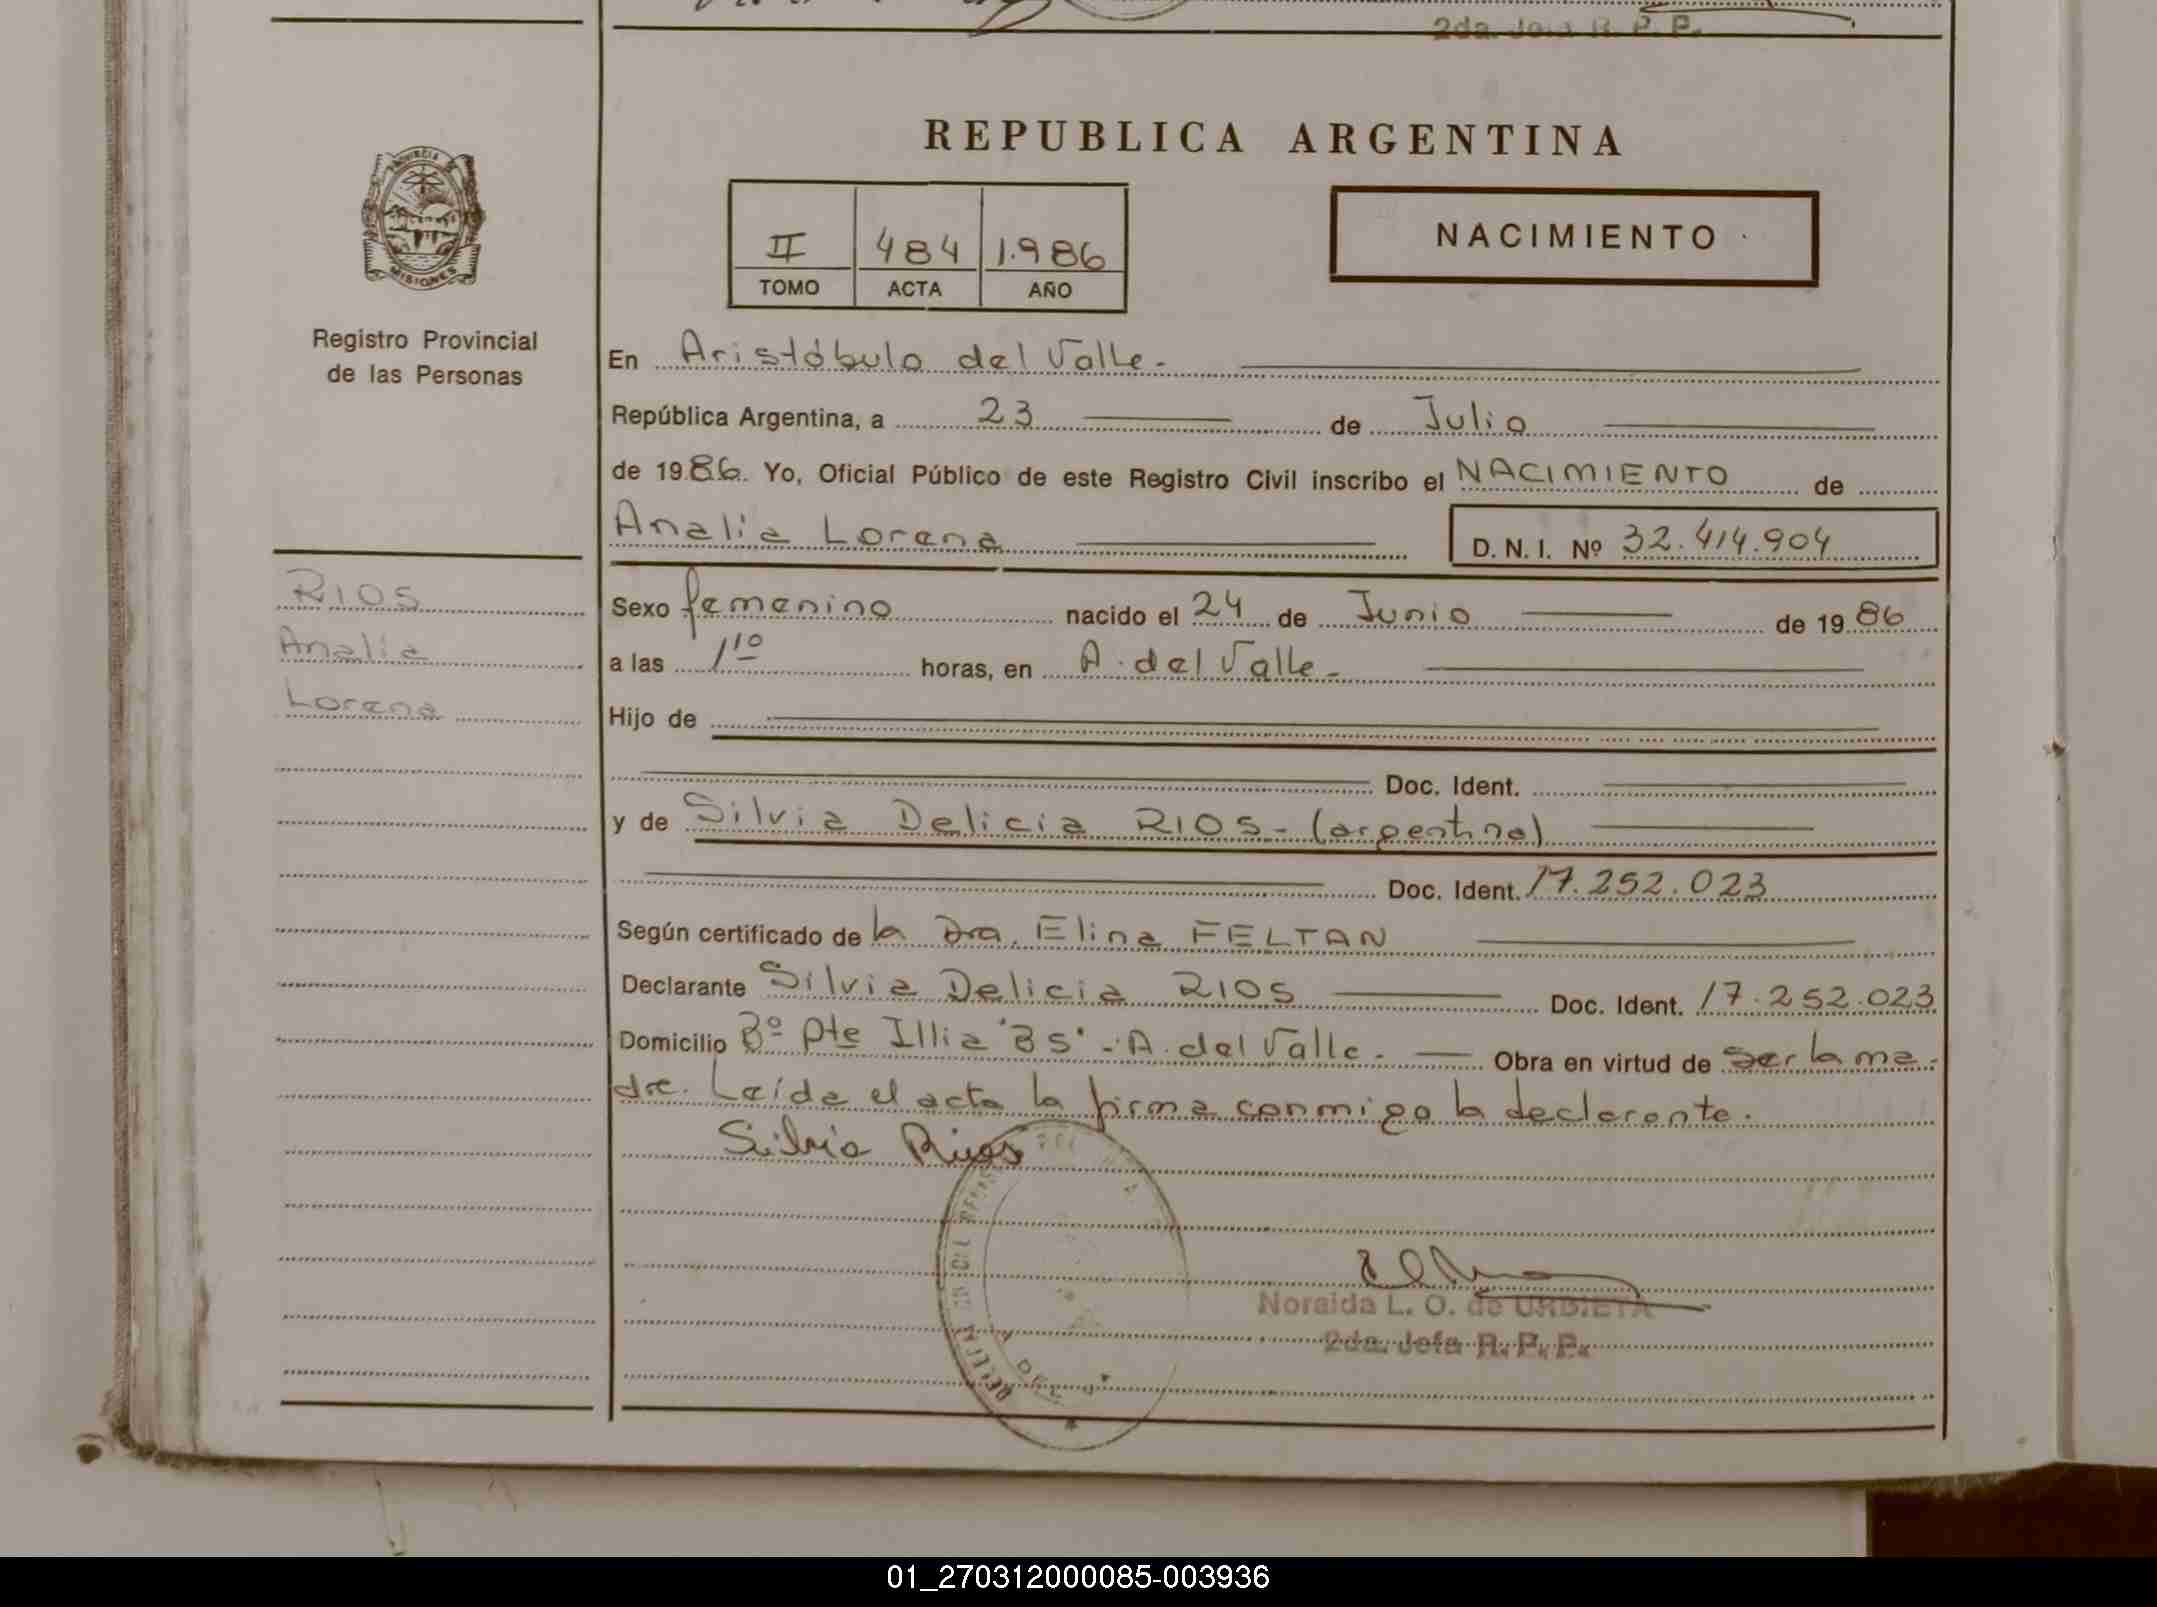 2da. Jefa R. P. P.
REPUBLICA ARGENTINA
PROVINCIA
MISIONES
II 484 1.986
TOMO ACTA AÑO
NACIMIENTO
Registro Provincial
de las Personas
En Aristóbulo del Valle.
República Argentina, a 23 de Julio
de 1986. Yo, Oficial Público de este Registro Civil inscribo el NACIMIENTO de
Analia Lorena D. N. I. Nº 32.414.904
RIOS
Analia
Lorena
Sexo femenino nacido el 24 de Junio de 19 86
a las 1 10 horas, en A. del Valle.
Hijo de
Doc. Ident.
y de Silvia Delicia RIOS - (argentina)
Doc. Ident. 17.252.023
Según certificado de la Dra. Elina FELTAN
Declarante Silvia Delicia RIOS Doc. Ident. 17.252.023
Domicilio Bº Pte Illia "35" - A. del Valle. Obra en virtud de ser la ma-
dre. Leída el acta la firma conmigo la declarante.
Silvia Rios
Noralda L. O. de URBIETA
2da. Jefa R. P. P.
01_270312000085-003936